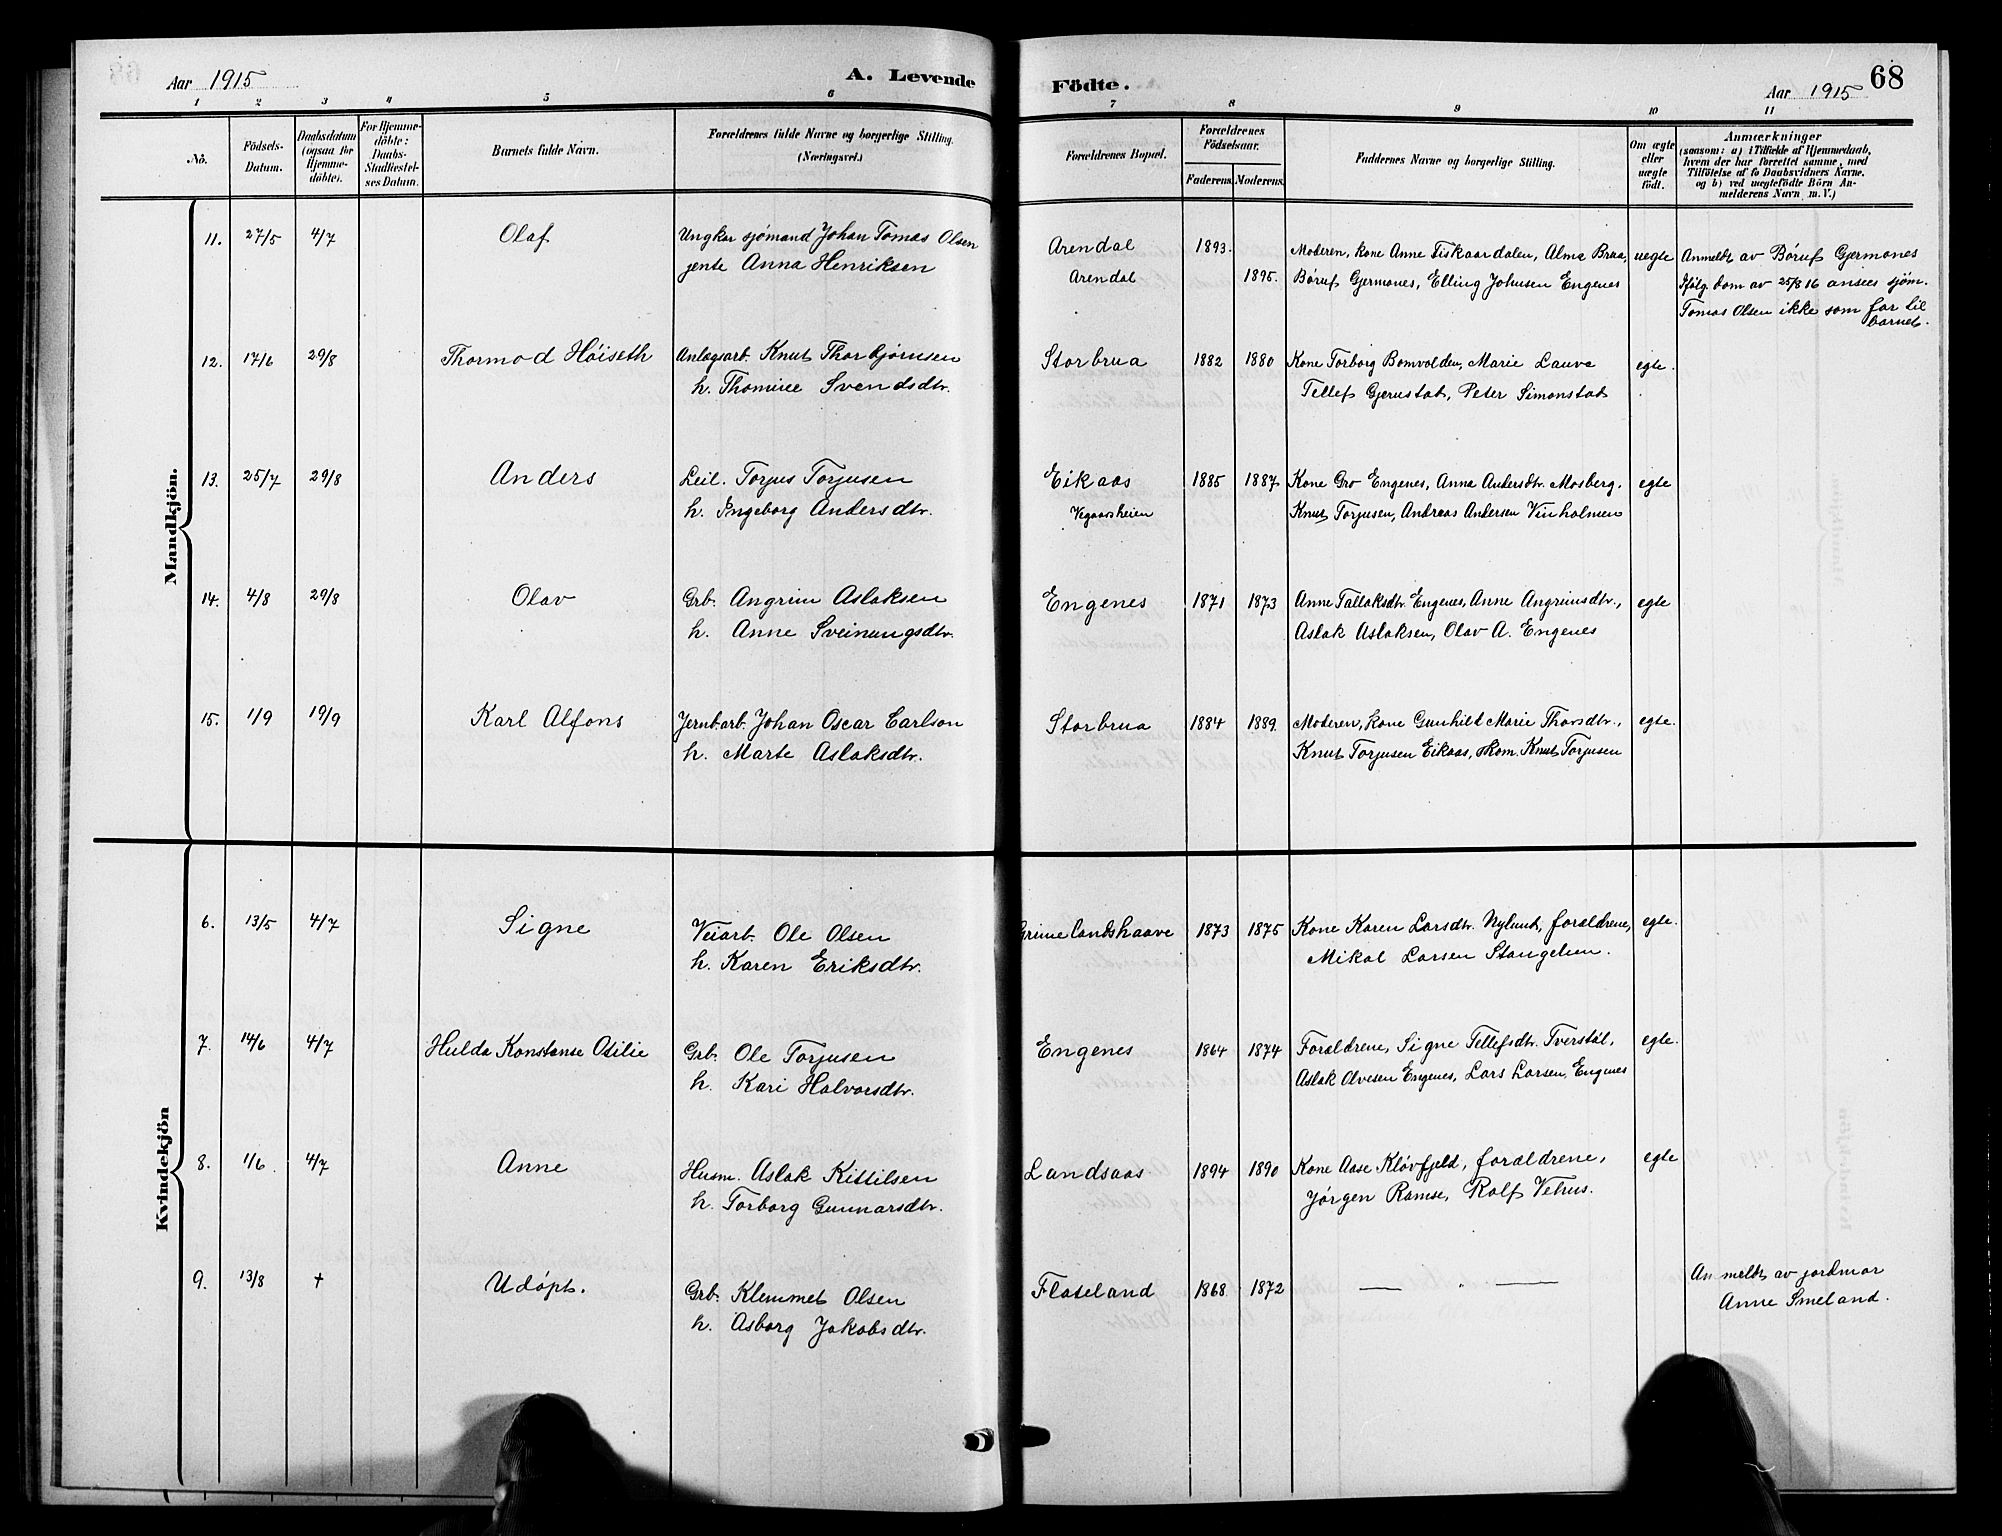 Aar 1915
A. Levende Födte.
Aar 1915
68
1 2 3 4 5 6 7 8 9 10 11
No.
Födsels-Datum.
Daabsdatum (ogsaa for Hjemme-döbte).
For Hjemme-döbte: Daabs-Stadfæstel-ses Datum.
Barnets fulde Navn.
Forældrenes fulde Navne og borgerlige Stilling. (Næringsvei.)
Forældrenes Bopæl.
Forældrenes Födselsaar.
Faderens. Moderens.
Faddernes Navne og borgerlige Stilling.
Om ægte eller uægte födt.
Anmærkninger
(saasom: a) i Tilfælde af Hjemmedaab,
hvem der har forrettet samme, med
Tilföielse af to Daabsvidners Navne,
og b) ved uægtefödte Börn An-
melderens Navn m. V.)
Mandkjön.
11. 27/5 4/7 Olaf Ungkar sjømand Johan Tomas Olsen Arendal 1893. Moderen, kone Anne Fiskaardalen, Alma Brua, uegte Anmeldt av Børuf Gjermones
jente Anna Henriksen Arendal 1895. Børuf Gjermones, Elling Johnsen Engenes Ifølg. dom av 25/8 16 ansees sjøm.
Tomas Olsen ikke som far til
barnet.
12. 17/6 29/8 Thormod Höiseth Anlægsarb. Knut Thorbjørnsen Storbrua 1882 1880 Kone Torborg Bomvolden, Marie Lauve egte.
h. Thomine Svendsdtr. Tellef Gjerustad, Peter Simonstad
13. 25/7 29/8 Anders Leil. Torjus Torjusen Eikaas 1885 1887 Kone Gro Engenes, Anna Andersdtr. Mosberg, egte
h. Ingeborg Andersdtr. Vegaarsheien Knut Torjusen, Andreas Andersen Vinholmen
14. 4/8 29/8 Olav Grb. Angrim Aslaksen Engenes 1871 1873 Anne Tallaksdtr. Engenes, Anne Angrimsdtr., egte
h. Anne Sveinungsdtr. Aslak Aslaksen, Olav A. Engenes
15. 1/9 19/9 Karl Alfons Jernb.arb. Johan Oscar Carlson Storbrua 1884 1889. Moderen, kone Gunhild Marie Thorsdtr., egte.
h. Marte Aslaksdtr. Knut Torjusen Eikaas, skom. Knut Torjusen
Kvindekjön
6. 13/5 4/7 Signe Veiarb. Ole Olsen Grimelandshaave 1873 1875 Kone Karen Larsdtr. Nylund, forældrene, egte.
h. Karen Eriksdtr. Mikal Larsen Stangelien.
7. 14/6 4/7 Hulda Konstanse Otilie Grb. Ole Torjusen Engenes 1864 1874 Forældrene, Signe Tellefsdtr. Tverstøl, egte.
h. Kari Halvorsdtr. Aslak Olvesen Engenes, Lars Larsen, Engenes
8. 1/6. 4/7 Anne Husm. Aslak Kittilsen Landsaas 1894 1890 Kone Aase Kløvfjeld, forældrene, egte
h. Torborg Gunnarsdtr. Jørgen Ramse, Rolf Vehus.
9. 13/8 + Udøpt. Grb. Klemmet Olsen Flateland 1868 1872 — " — Anmeldt av jordmor
h. Asborg Jakobsdtr. Anne Smeland.